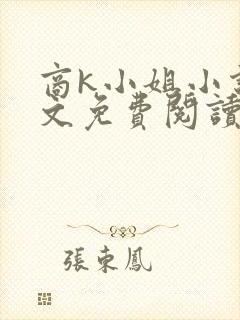 商K小姐小
文免費閱讀
張東鳳